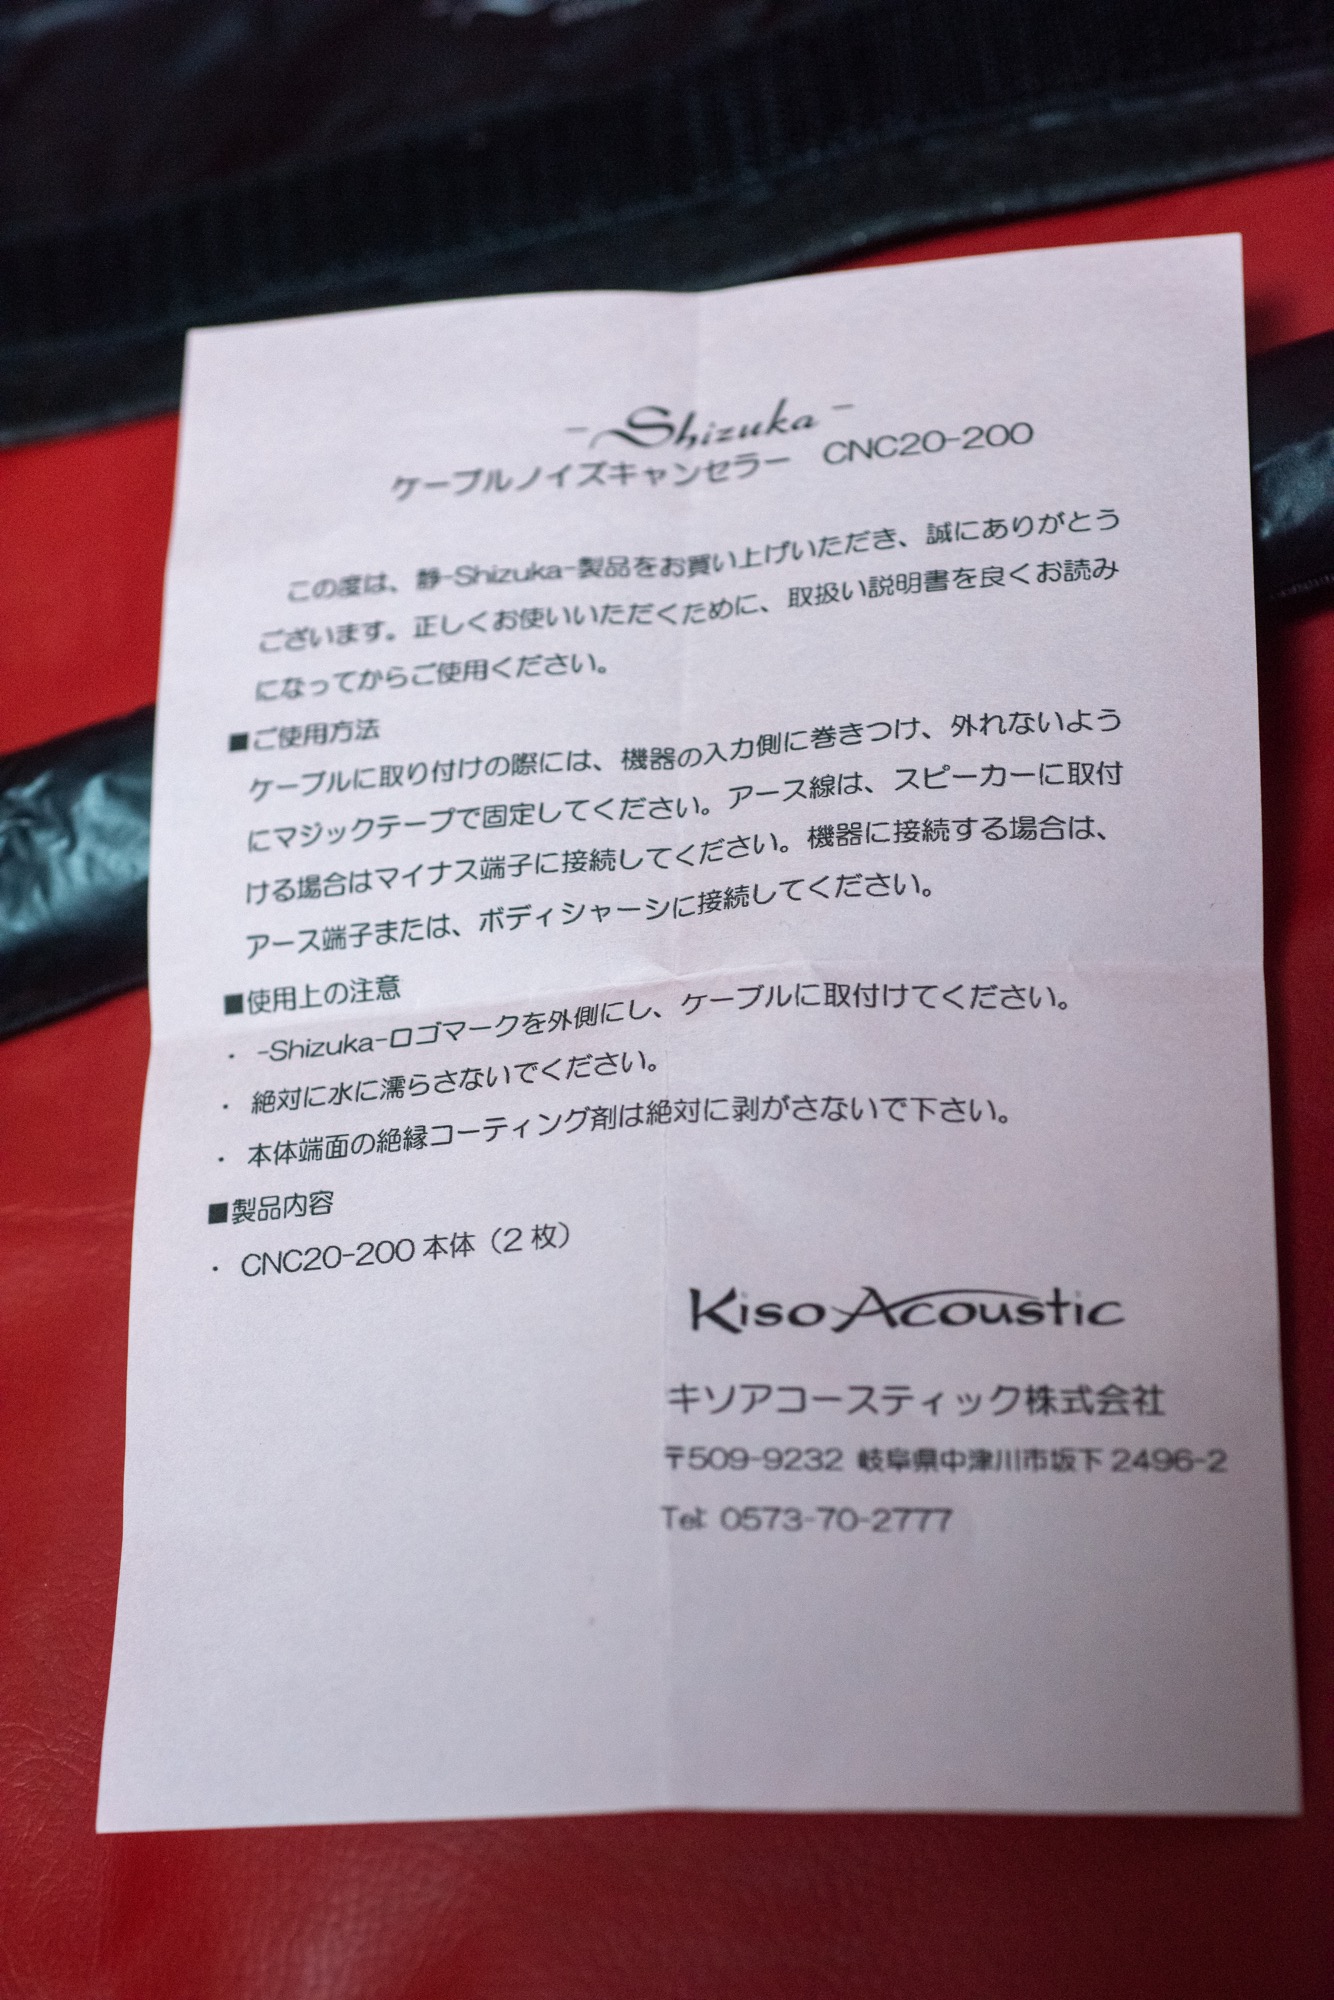 -Shizuka-
ケーブルノイズキャンセラー CNC20-200
この度は、静-Shizuka-製品をお買い上げいただき、誠にありがとう
ございます。正しくお使いいただくために、取扱い説明書を良くお読み
になってからご使用ください。
■ご使用方法
ケーブルに取り付けの際には、機器の入力側に巻きつけ、外れないよう
にマジックテープで固定してください。アース線は、スピーカーに取付
ける場合はマイナス端子に接続してください。機器に接続する場合は、
アース端子または、ボディシャーシに接続してください。
■使用上の注意
・ -Shizuka-ロゴマークを外側にし、ケーブルに取付けてください。
・ 絶対に水に濡らさないでください。
・ 本体端面の絶縁コーティング剤は絶対に剥がさないで下さい。
■製品内容
・ CNC20-200 本体（2 枚）
Kiso Acoustic
キソアコースティック株式会社
〒509-9232 岐阜県中津川市坂下 2496-2
Tel: 0573-70-2777